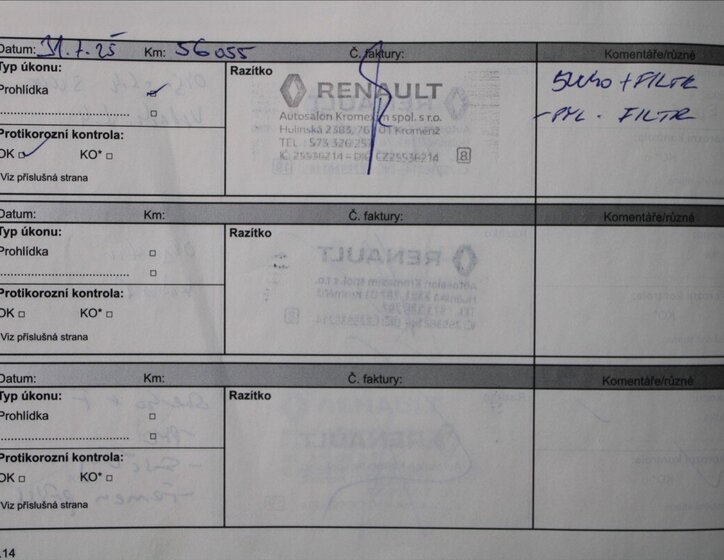 Datum: 31.7.25 Km: 56055 Č. faktury: Komentáře/různé
Typ úkonu: Razítko
Prohlídka
RENAULT
Autosalon Kromexim spol. s r.o.
Hulínská 2383, 76701 Kroměříž
TEL.: 573 326 257
8
+ FILTR
- PYL. FILTR
Protikorozní kontrola:
OK KO*
Viz příslušná strana
Datum: Km: Č. faktury: Komentáře/různé
Typ úkonu: Razítko
Prohlídka
Protikorozní kontrola:
OK KO*
Viz příslušná strana
Datum: Km: Č. faktury: Komentáře/různé
Typ úkonu: Razítko
Prohlídka
Protikorozní kontrola:
OK KO*
Viz příslušná strana
.14